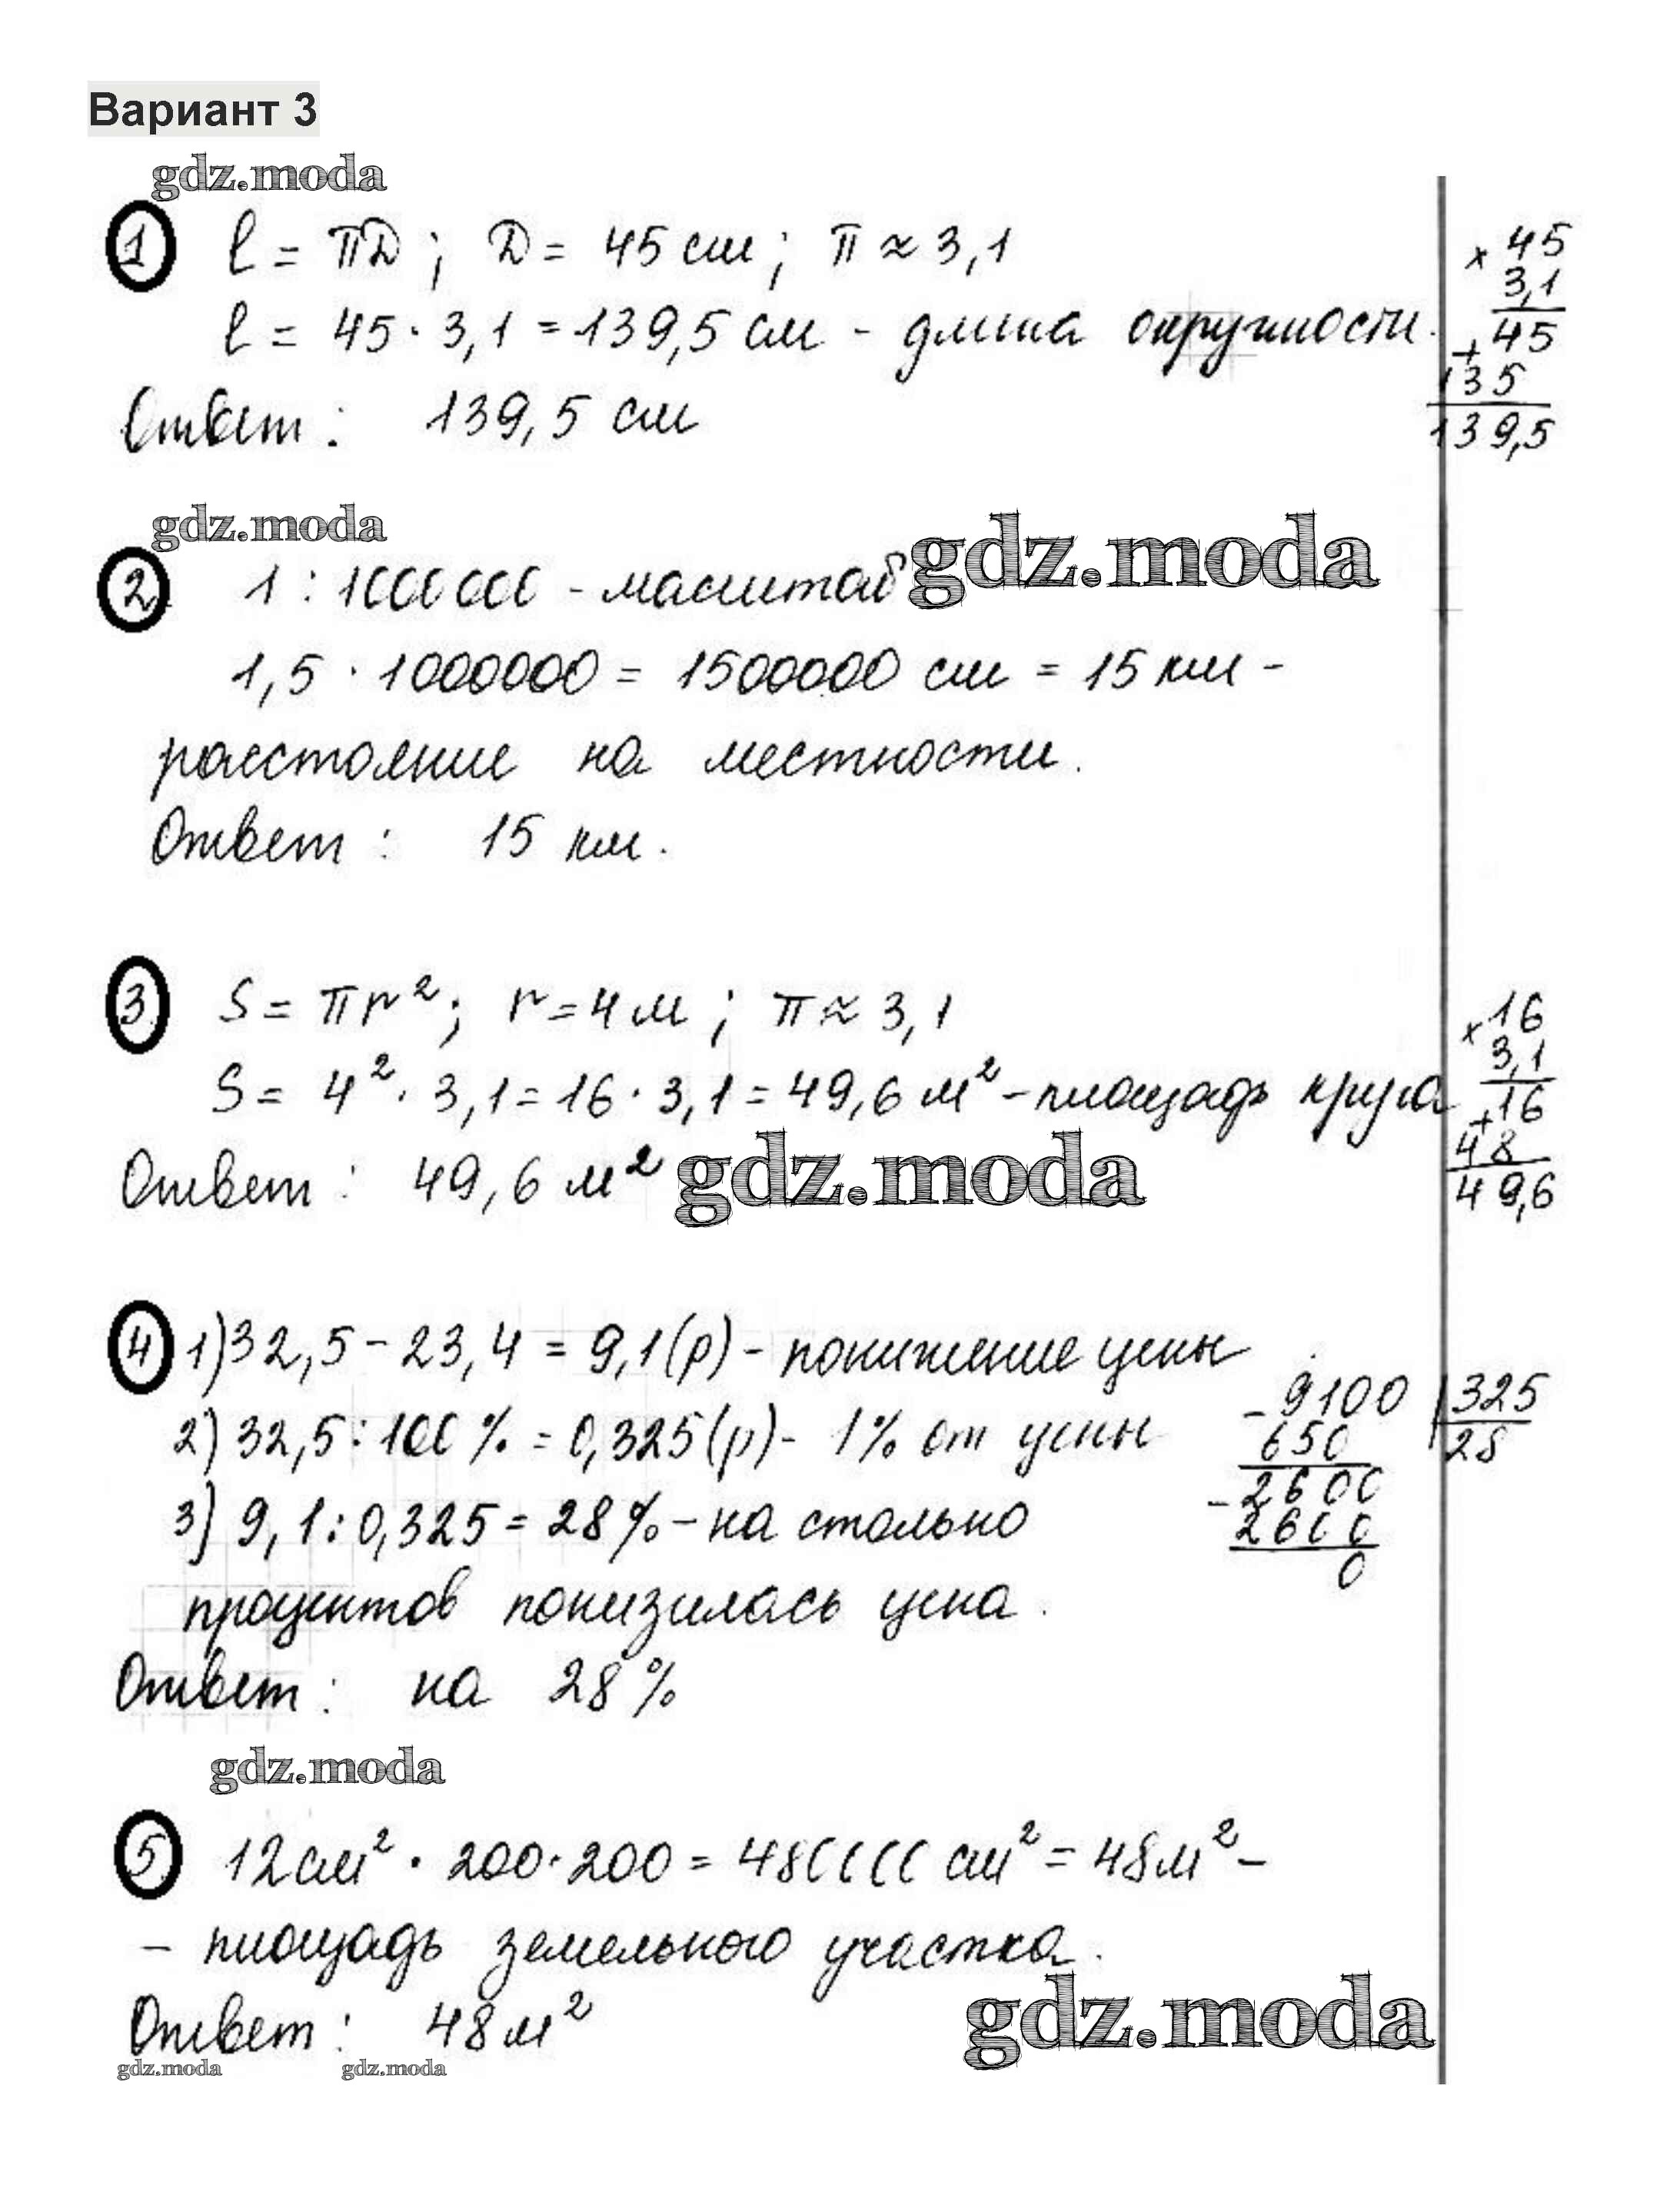 Вариант 3
gdz.moda
1 l = πD; D = 45 см; π ≈ 3,1
l = 45 · 3,1 = 139,5 см - длина окружности.
Ответ: 139,5 см
× 45
3,1
+ 45
135
139,5
gdz.moda
2 1 : 1000000 - масштаб
gdz.moda
1,5 · 1000000 = 1500000 см = 15 км -
расстояние на местности.
Ответ: 15 км.
3 S = πr²; r = 4 м; π ≈ 3,1
S = 4² · 3,1 = 16 · 3,1 = 49,6 м² - площадь круга
Ответ: 49,6 м²
gdz.moda
× 16
3,1
+ 16
48
49,6
4 1) 32,5 - 23,4 = 9,1 (р) - понижение цены
2) 32,5 : 100 % = 0,325 (р) - 1% от цены
3) 9,1 : 0,325 = 28 % - на столько
процентов понизилась цена.
Ответ: на 28 %
- 9100 | 325
650 28
- 2600
2600
0
gdz.moda
5 12 см² · 200 · 200 = 480000 см² = 48 м² -
- площадь земельного участка.
Ответ: 48 м²
gdz.moda
gdz.moda gdz.moda